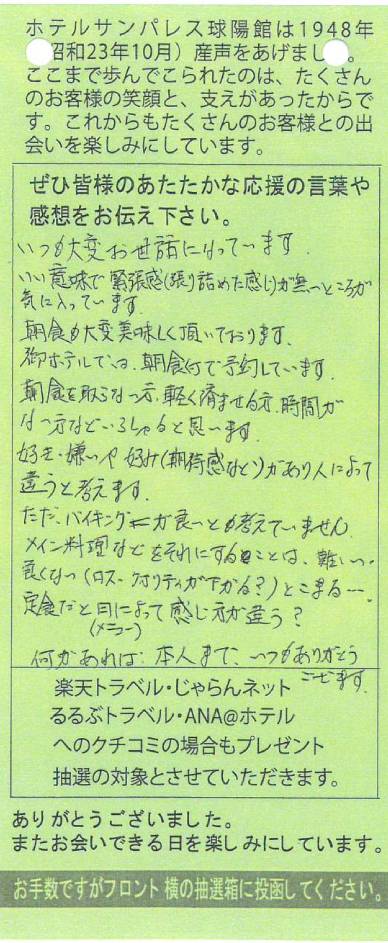 ホテルサンパレス球陽館は1948年
昭和23年10月）産声をあげまし 。
ここまで歩んでこられたのは、たくさん
のお客様の笑顔と、支えがあったからで
す。これからもたくさんのお客様との出
会いを楽しみにしています。
ぜひ皆様のあたたかな応援の言葉や
感想をお伝え下さい。
いつも大変お世話になっています.
いい意味で緊張感(張り詰めた感じ)が無いところが
気に入っています.
朝食も大変美味しく頂いております.
御ホテルでは、朝食付で予約しています.
朝食を取らない方、軽く済ませる方、時間が
ない方などいらっしゃると思います.
好き・嫌いや好み(期待感など)があり人によって
違うと考えます.
ただ、バイキングが良いとも考えていません.
メイン料理などをそれにすることは、難しい.
良くない(ロス・クオリティが下がる?)とこまる….
定食だと日によって感じ方が違う?
(メニュー)
何かあれば、本人まで、いつもありがとう
ございます.
楽天トラベル・じゃらんネット
るるぶトラベル・ANA@ホテル
へのクチコミの場合もプレゼント
抽選の対象とさせていただきます。
ありがとうございました。
またお会いできる日を楽しみにしています。
お手数ですがフロント横の抽選箱に投函してください。